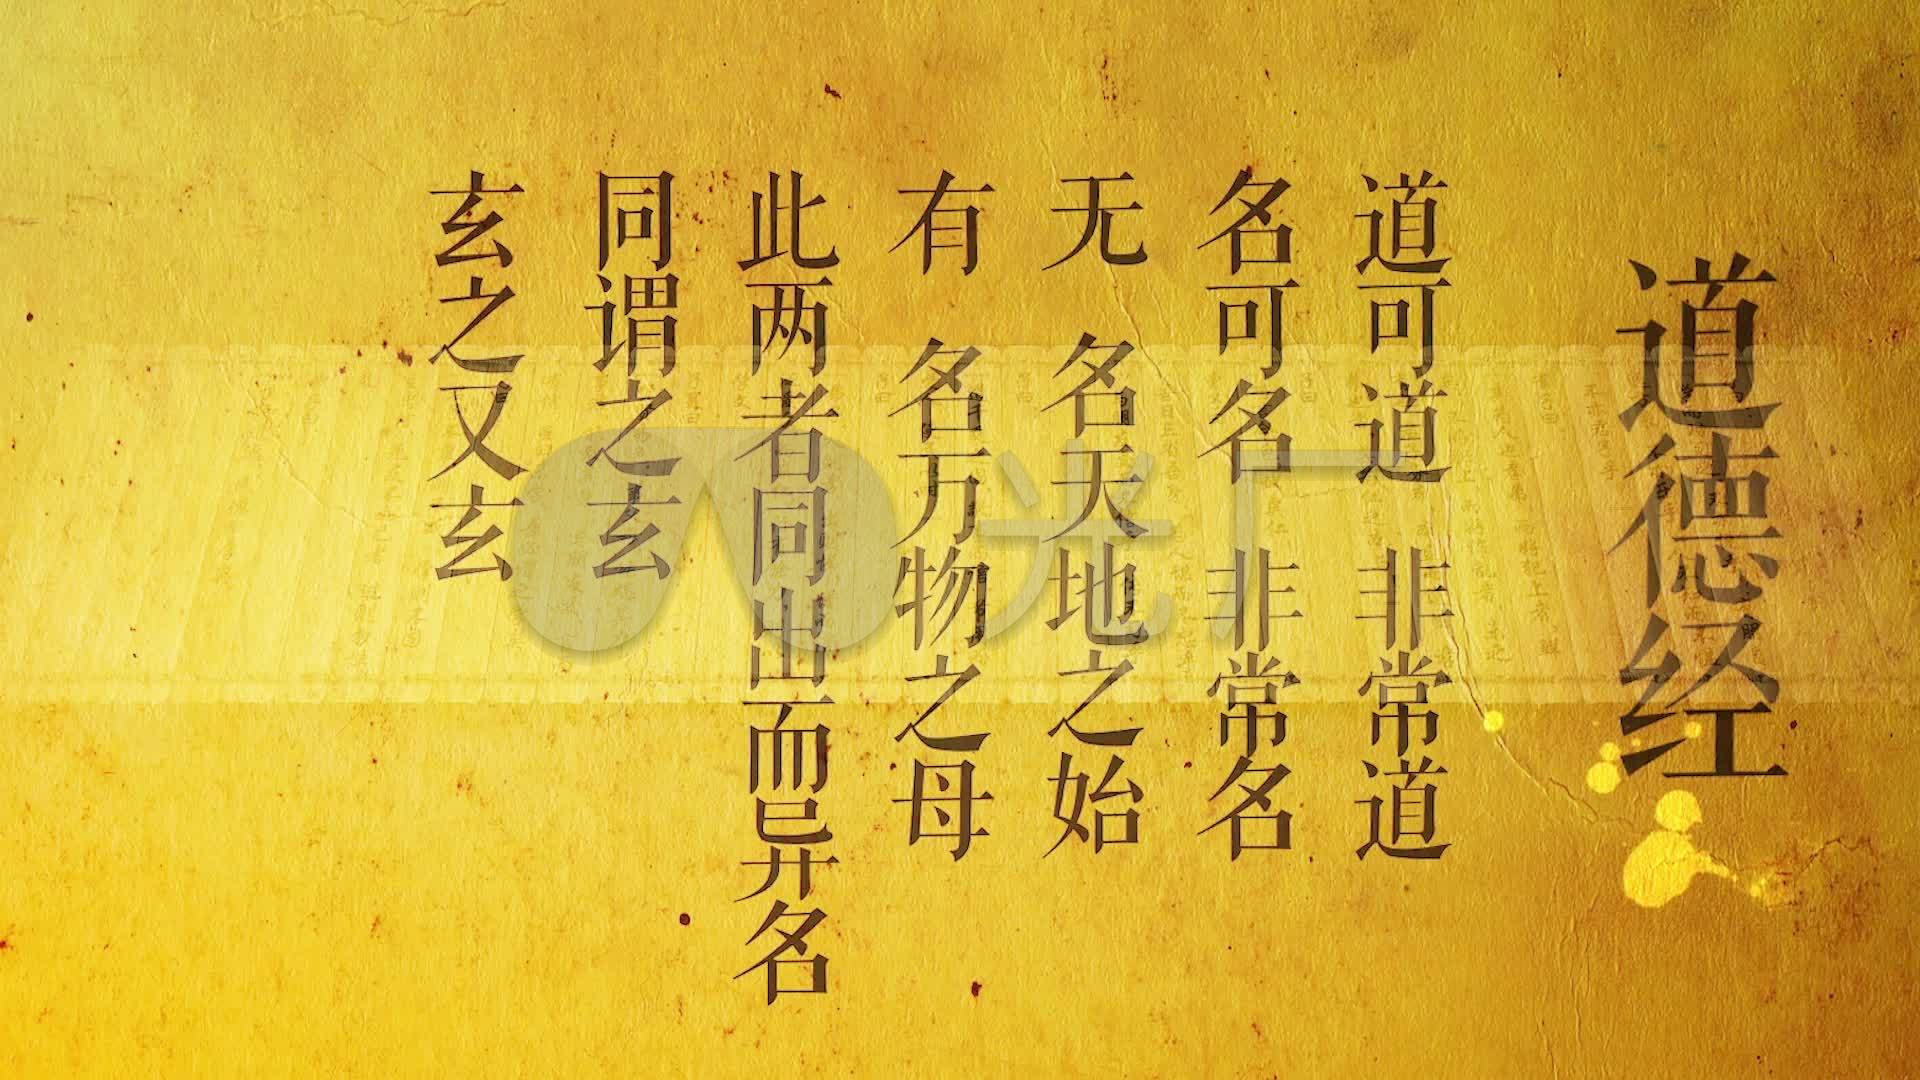 道德经
道可道 非常道
名可名 非常名
无 名天地之始
有 名万物之母
此两者同出而异名
同谓之玄
玄之又玄
光厂